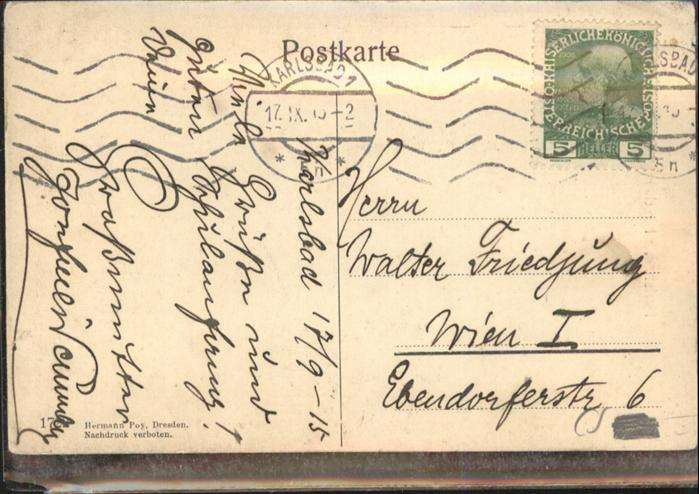 Postkarte
KARLSBAD 1
17.IX.15-2
KAISERLICHEKÖNIGLICHE
ÖSTERREICHISCHE POST
5 HELLER 5
Karlsbad 17/9-15
Grüße und
Schulanfang!
guten
Großmutter
Herrn
Walter Friedjung
Wien I
Ebendorferstr 6
Hermann Poy, Dresden.
Nachdruck verboten.